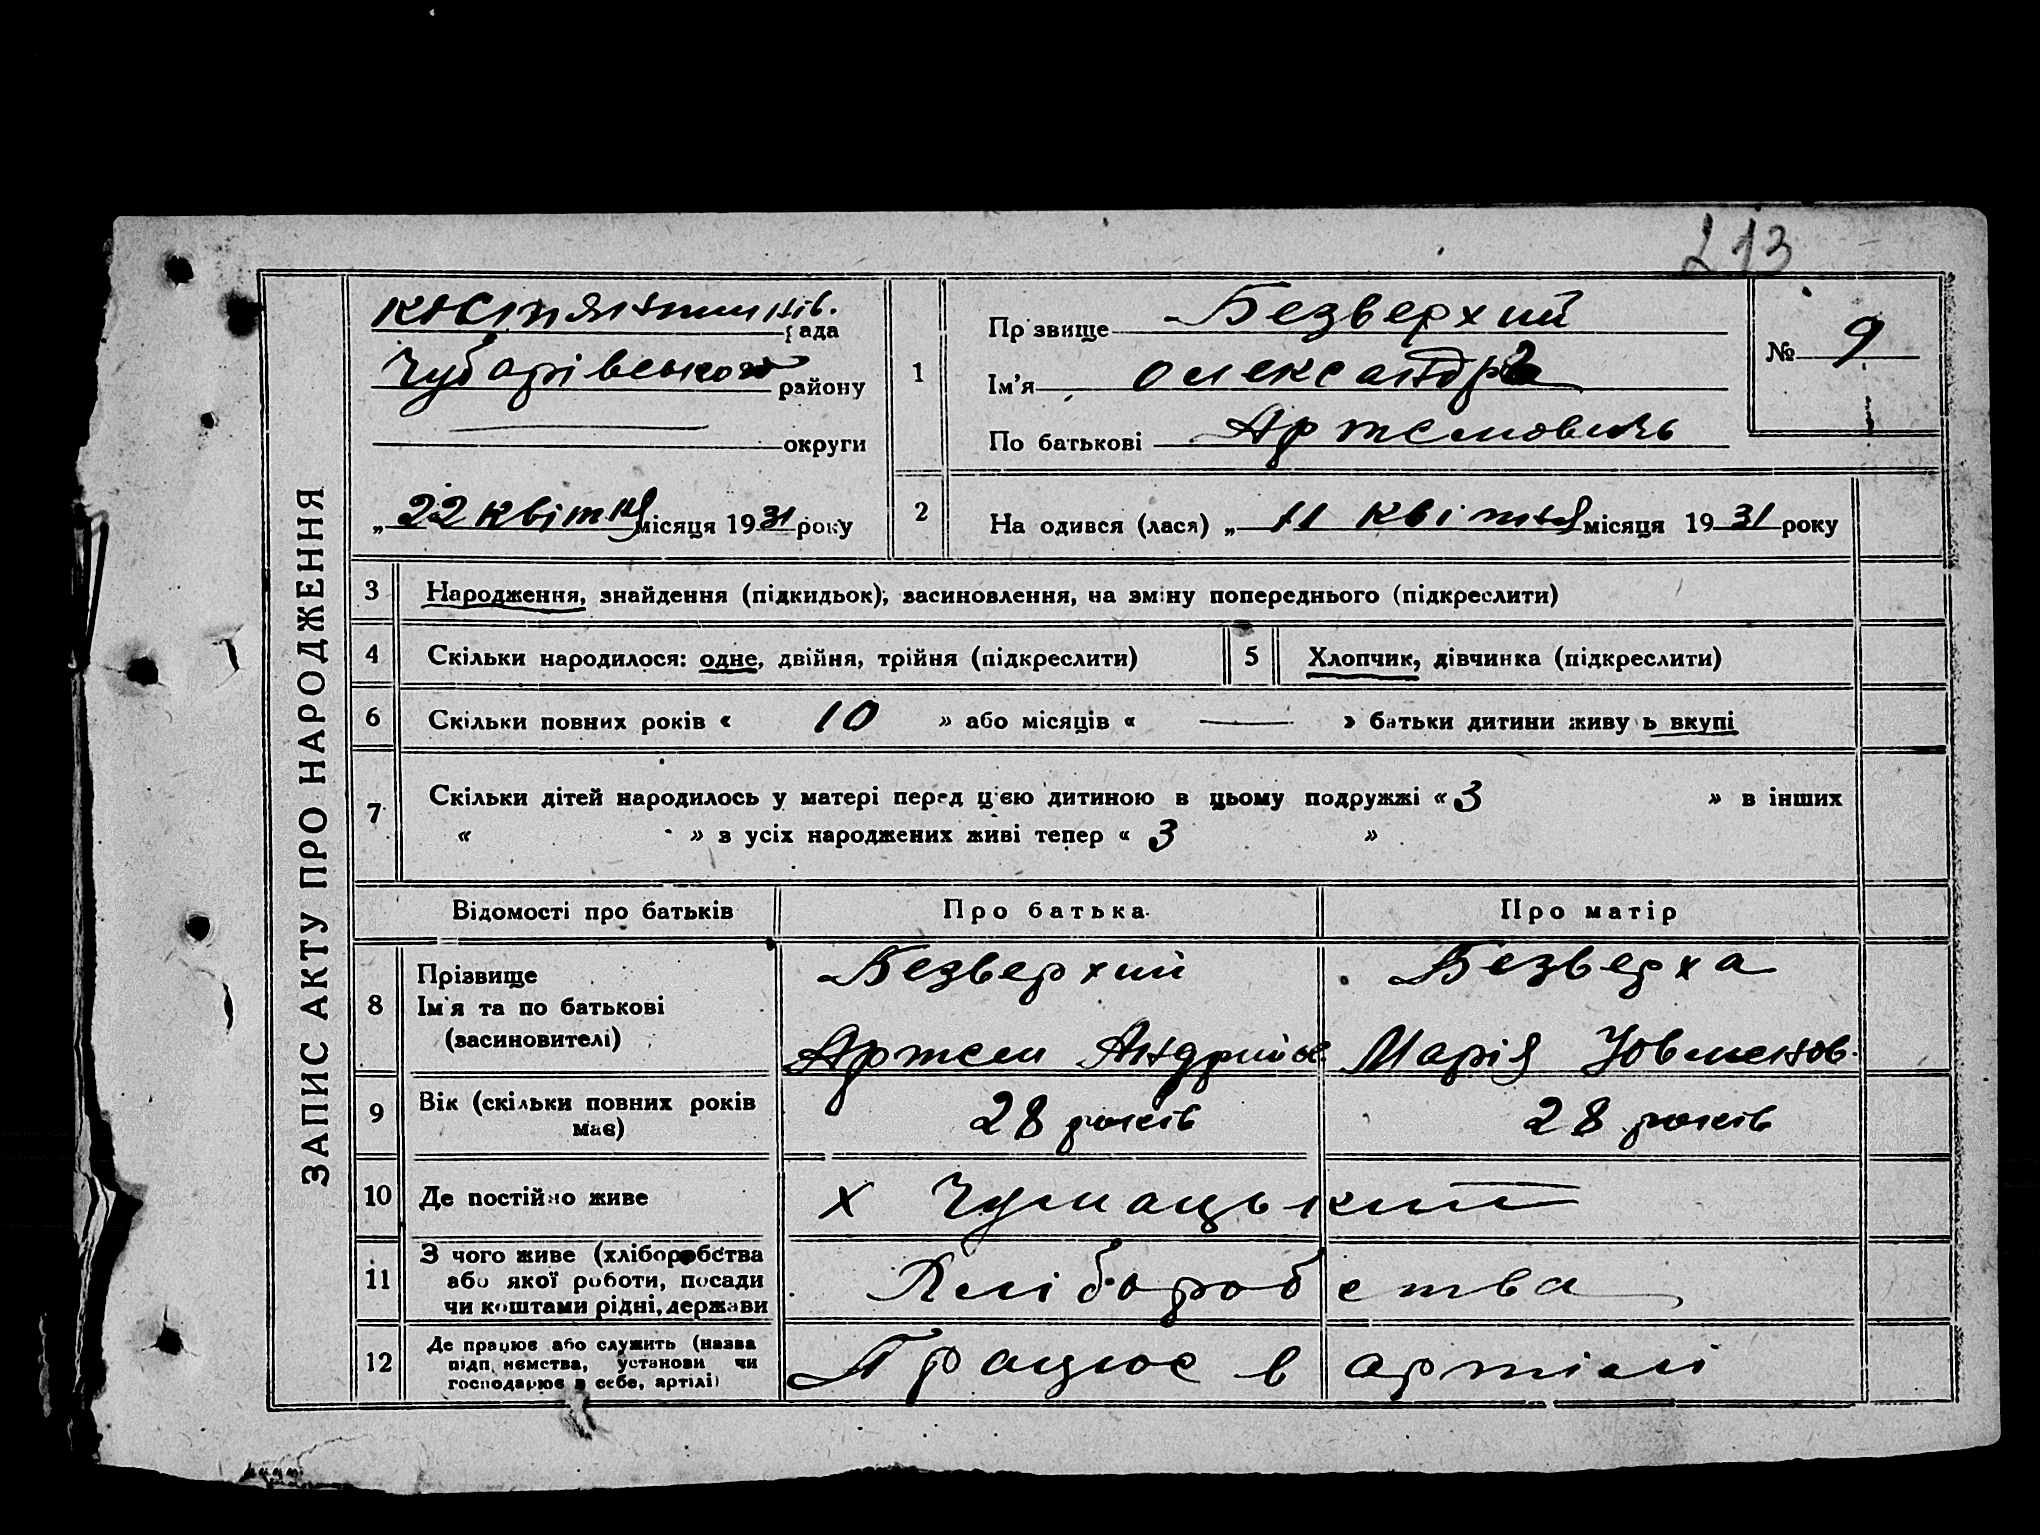 213
ЗАПИС АКТУ ПРО НАРОДЖЕННЯ
Костянтинів. рада
Чубарівського району
округи
„ 22 квітня місяця 1931 року
1
Прізвище Безверхий
Ім'я Олександр
По батькові Артемович
№ 9
2
На одився (лася) „ 11 квітня місяця 1931 року
3 Народження, знайдення (підкидьок), засиновлення, на зміну попереднього (підкреслити)
4 Скільки народилося: одне, двійня, трійня (підкреслити)
5 Хлопчик, дівчинка (підкреслити)
6 Скільки повних років « 10 » або місяців « — » батьки дитини живу ь вкупі
7 Скільки дітей народилось у матері перед цією дитиною в цьому подружжі « 3 » в інших
« » з усіх народжених живі тепер « 3 »
Відомості про батьків Про батька Про матір
8 Прізвище
Ім'я та по батькові
(засиновителі)
Безверхий
Артем Андрійов.
Безверха
Марія Ювменов.
9 Вік (скільки повних років
має)
28 років 28 років
10 Де постійно живе х Чумацький
11 З чого живе (хліборобства
або якої роботи, посади
чи коштами рідні, держави
Хліборобства
12 Де працює або служить (назва
підп. немства, установи чи
господарює в себе, артілі)
Працює в артілі